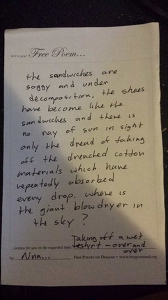 Free Poem...
the sandwiches are
soggy and under
decomposition, the shoes
have become like the
sandwiches and there is
no ray of sun in sight
only the dread of taking
off the drenched cotton
materials which have
repeatedly absorbed
every drop. where is
the giant blowdryer in
the sky?
Taking off a wet
teshirt - over and
over
Nina...